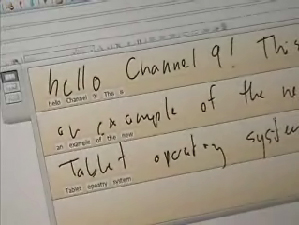 hello Channel 9! This
hello Channel 9 This is
an example of the ne
an example of the new
Tablet operating system
Tablet operating system